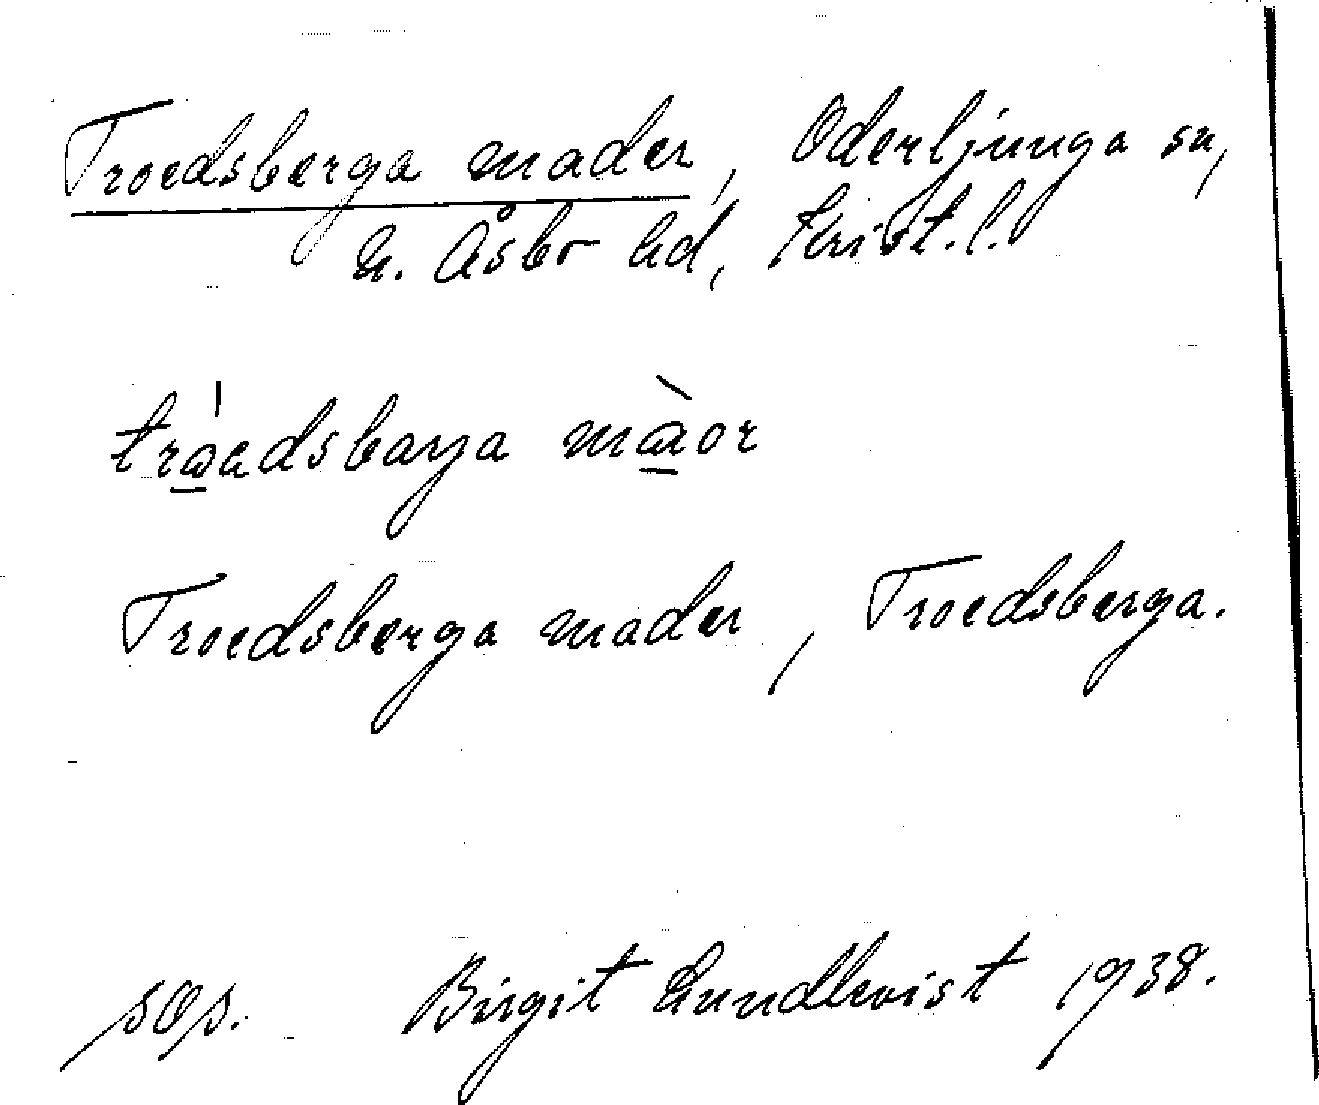 Troedsberga mader, Oderljunga sn,
N. Åsbo hd, Krist. l.
mader
Troedsberga mader, Troedsberga.
Birgit Lundkvist 1938.